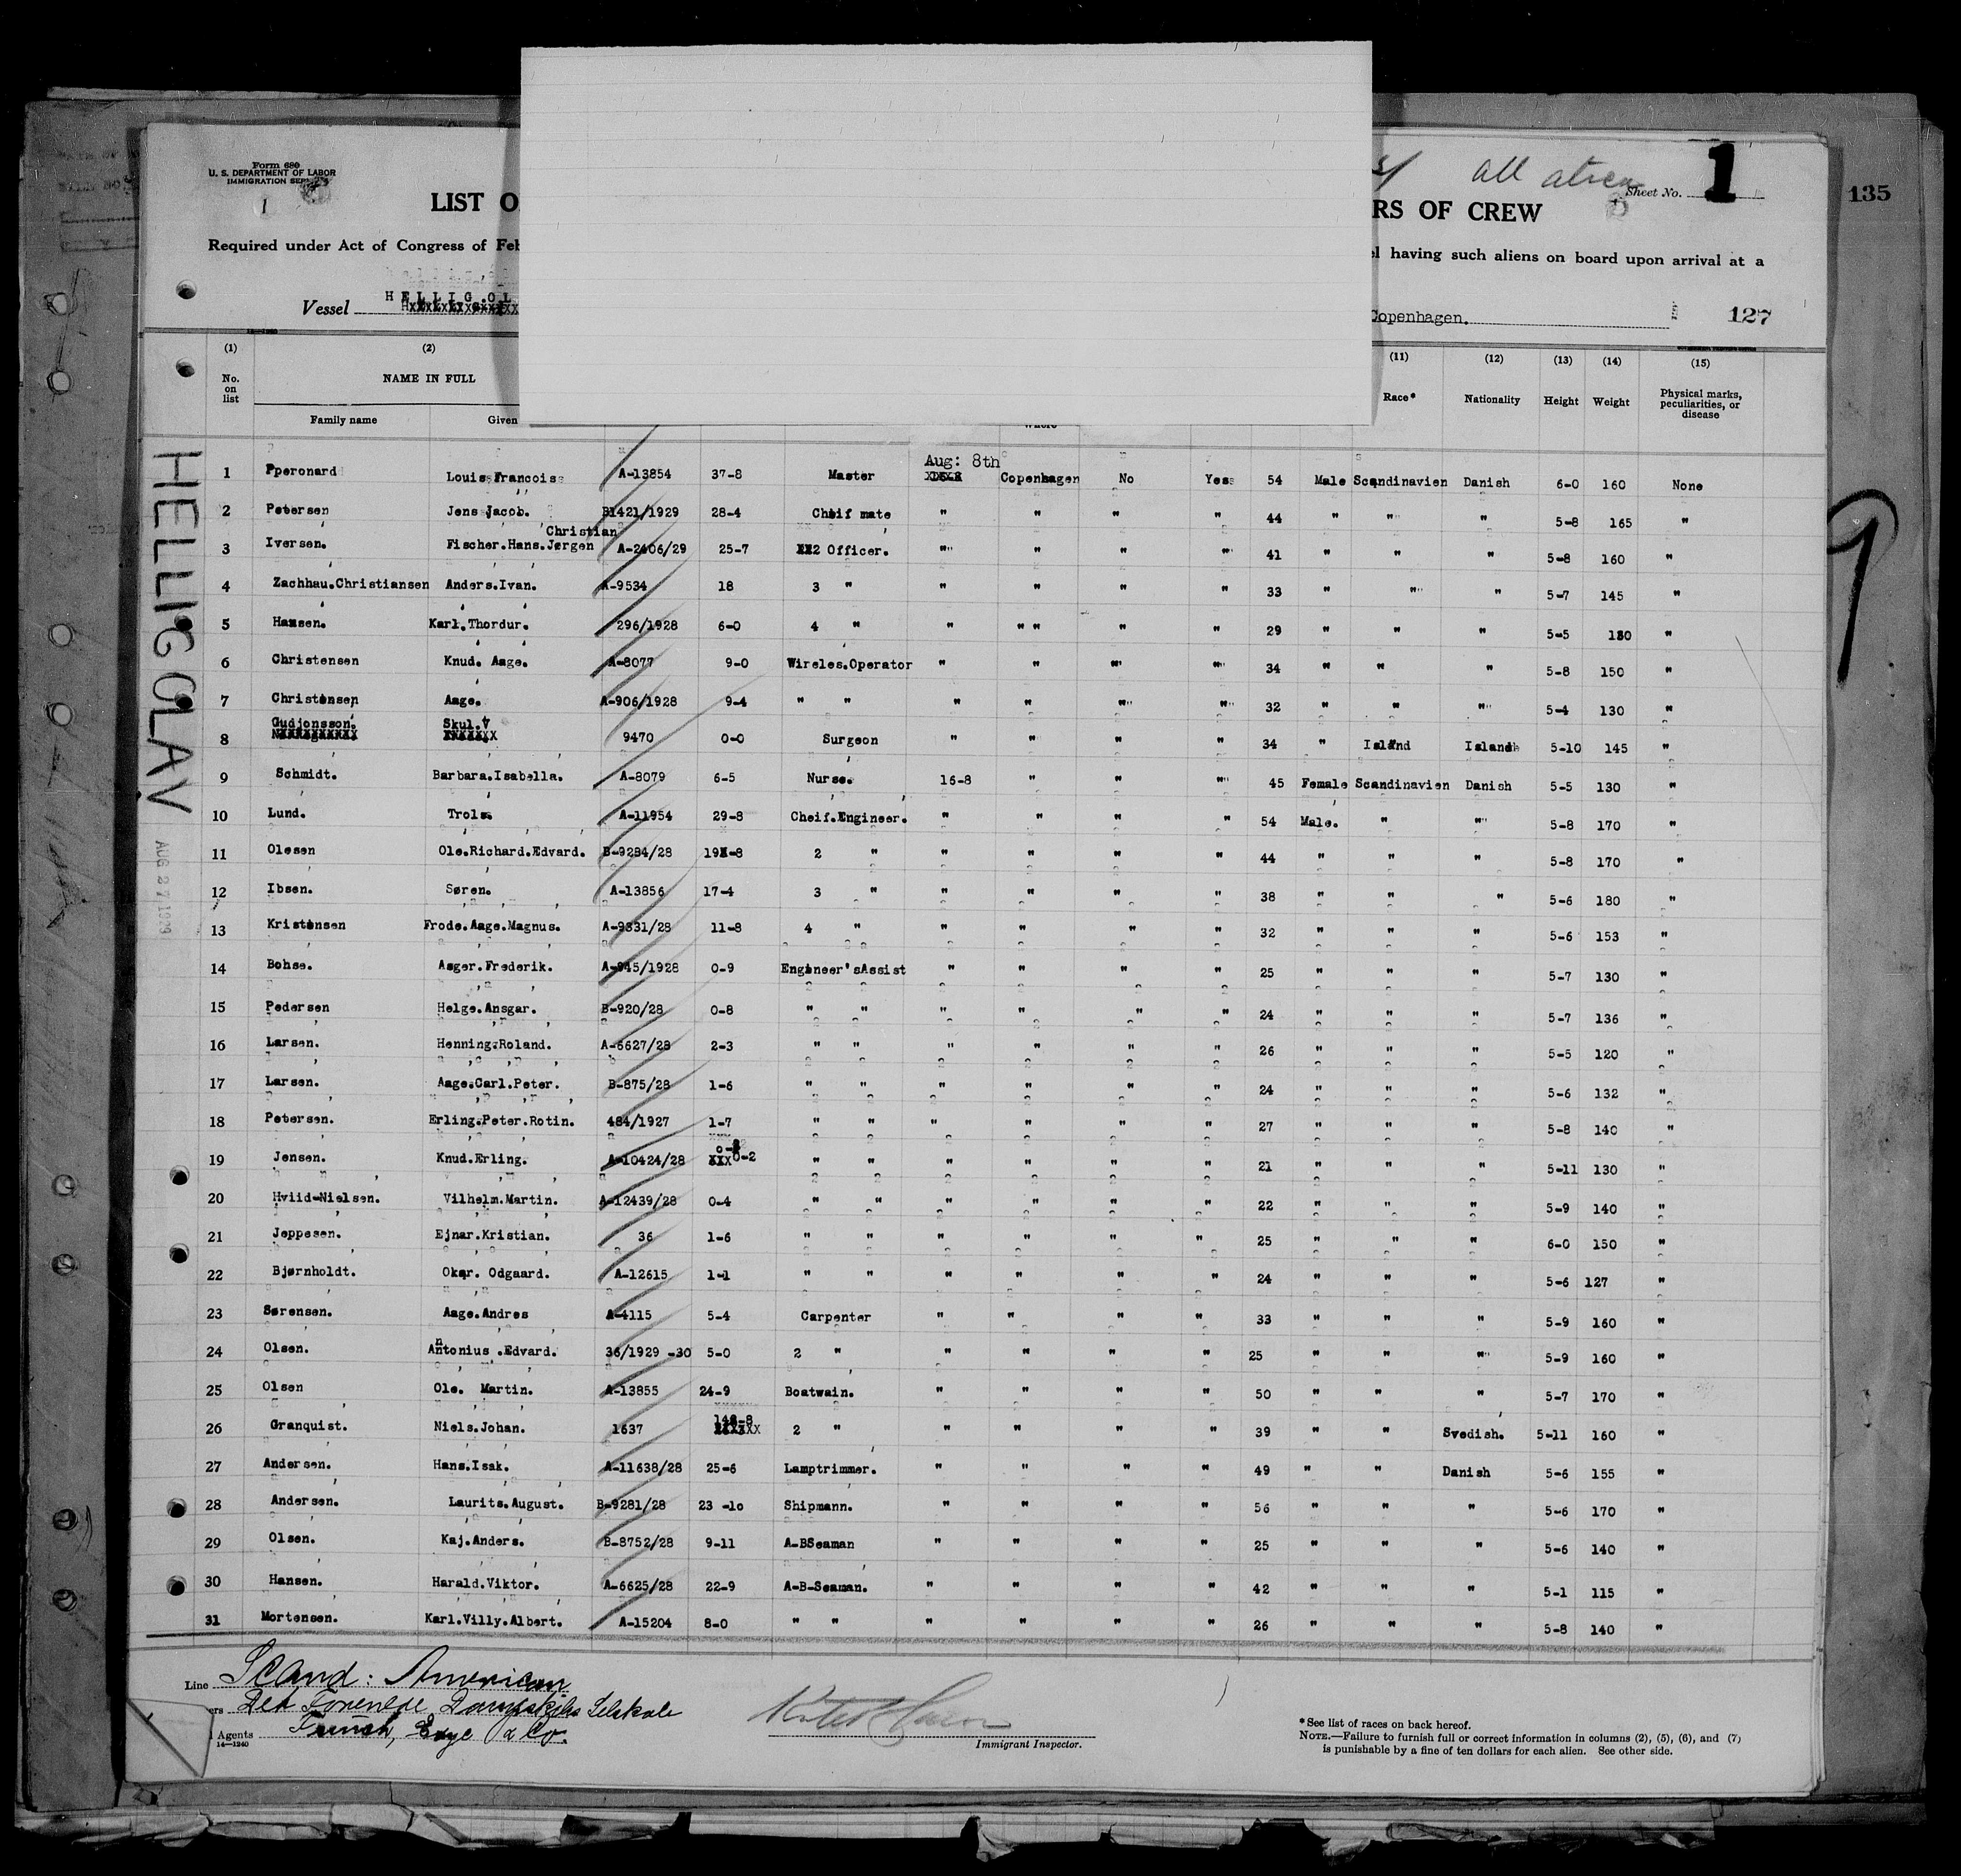 Form 680
U. S. DEPARTMENT OF LABOR
IMMIGRATION
1
LIST O
RS OF CREW
all
Sheet No. 1
135
Required under Act of Congress of Feb
l having such aliens on board upon arrival at a
Vessel HELLIG.OL
Copenhagen.
127
(1) (2) (11) (12) (13) (14) (15)
No. on list NAME IN FULL Race* Nationality Height Weight Physical marks, peculiarities, or disease
Family name Given
HELLIG OLAV
AUG 27 1929
Aug: 8th
1 Pperonard Louis Francois A-13854 37-8 Master Copenhagen No Yes 54 Male Scandinavien Danish 6-0 160 None
2 Petersen Jens Jacob. B1421/1929 28-4 Cheif mate " " " " 44 " " " 5-8 165 "
Christian
3 Iversen. Fischer.Hans.Jørgen A-2406/29 25-7 2 Officer. " " " " 41 " " " 5-8 160 "
4 Zachhau.Christiansen Anders.Ivan. A-9534 18 3 " " " " " 33 " " " 5-7 145 "
5 Hansen. Karl.Thordur. 296/1928 6-0 4 " " " " " " 29 " " " 5-5 130 "
6 Christensen Knud. Aage. A-8077 9-0 Wireles.Operator " " " " 34 " " " 5-8 150 "
7 Christensen Aage. A-906/1928 9-4 " " " " " " 32 " " " 5-4 130 "
Gudjonsson. Skul.V
8 9470 0-0 Surgeon " " " " 34 " Island Island 5-10 145 "
9 Schmidt. Barbara.Isabella. A-8079 6-5 Nurse. 16-8 " " " 45 Female Scandinavien Danish 5-5 130 "
10 Lund. Trols. A-11954 29-8 Cheif.Engineer. " " " " 54 Male. " " 5-8 170 "
11 Olesen Ole.Richard.Edvard. B-9284/28 19-8 2 " " " " " 44 " " " 5-8 170 "
12 Ibsen. Søren. A-13856 17-4 3 " " " " " 38 " " " 5-6 180 "
13 Kristensen Frode.Aage.Magnus. A-9331/28 11-8 4 " " " " " 32 " " " 5-6 153 "
14 Bohse. Asger.Frederik. A-945/1928 0-9 Engineer'sAssist " " " " 25 " " " 5-7 130 "
15 Pedersen Helge.Ansgar. B-920/28 0-8 " " " " " " 24 " " " 5-7 136 "
16 Larsen. Henning.Roland. A-6627/28 2-3 " " " " " " 26 " " " 5-5 120 "
17 Larsen. Aage.Carl.Peter. B-875/28 1-6 " " " " " " 24 " " " 5-6 132 "
18 Petersen. Erling.Peter.Rotin. 484/1927 1-7 " " " " " " 27 " " " 5-8 140 "
19 Jensen. Knud.Erling. A-10424/28 0-2 " " " " " " 21 " " " 5-11 130 "
20 Hviid-Nielsen. Vilhelm.Martin. A-12439/28 0-4 " " " " " " 22 " " " 5-9 140 "
21 Jeppesen. Ejnar.Kristian. 36 1-6 " " " " " " 25 " " " 6-0 150 "
22 Bjørnholdt. Okar. Odgaard. A-12615 1-1 " " " " " " 24 " " " 5-6 127 "
23 Sørensen. Aage.Andres A-4115 5-4 Carpenter " " " " 33 " " " 5-9 160 "
24 Olsen. Antonius .Edvard. 36/1929 -30 5-0 2 " " " " " 25 " " " 5-9 160 "
25 Olsen Ole. Martin. A-13855 24-9 Boatwain. " " " " 50 " " " 5-7 170 "
26 Granquist. Niels.Johan. 1637 2 " " " " " 39 " " Svedish. 5-11 160 "
27 Andersen. Hans.Isak. A-11638/28 25-6 Lamptrimmer. " " " " 49 " " Danish 5-6 155 "
28 Andersen. Laurits.August. B-9281/28 23 -10 Shipmann. " " " " 56 " " " 5-6 170 "
29 Olsen. Kaj.Anders. B-8752/28 9-11 A-BSeaman " " " " 25 " " " 5-6 140 "
30 Hansen. Harald.Viktor. A-6625/28 22-9 A-B-Seaman. " " " " 42 " " " 5-1 115 "
31 Mortensen. Karl.Villy.Albert. A-15204 8-0 " " " " " " 26 " " " 5-8 140 "
Line Scand: American
ers Det Forenede Dampskibs Selskab
Agents Funch, Edye & Co.
14—1240
Immigrant Inspector.
*See list of races on back hereof.
NOTE.—Failure to furnish full or correct information in columns (2), (5), (6), and (7)
is punishable by a fine of ten dollars for each alien. See other side.